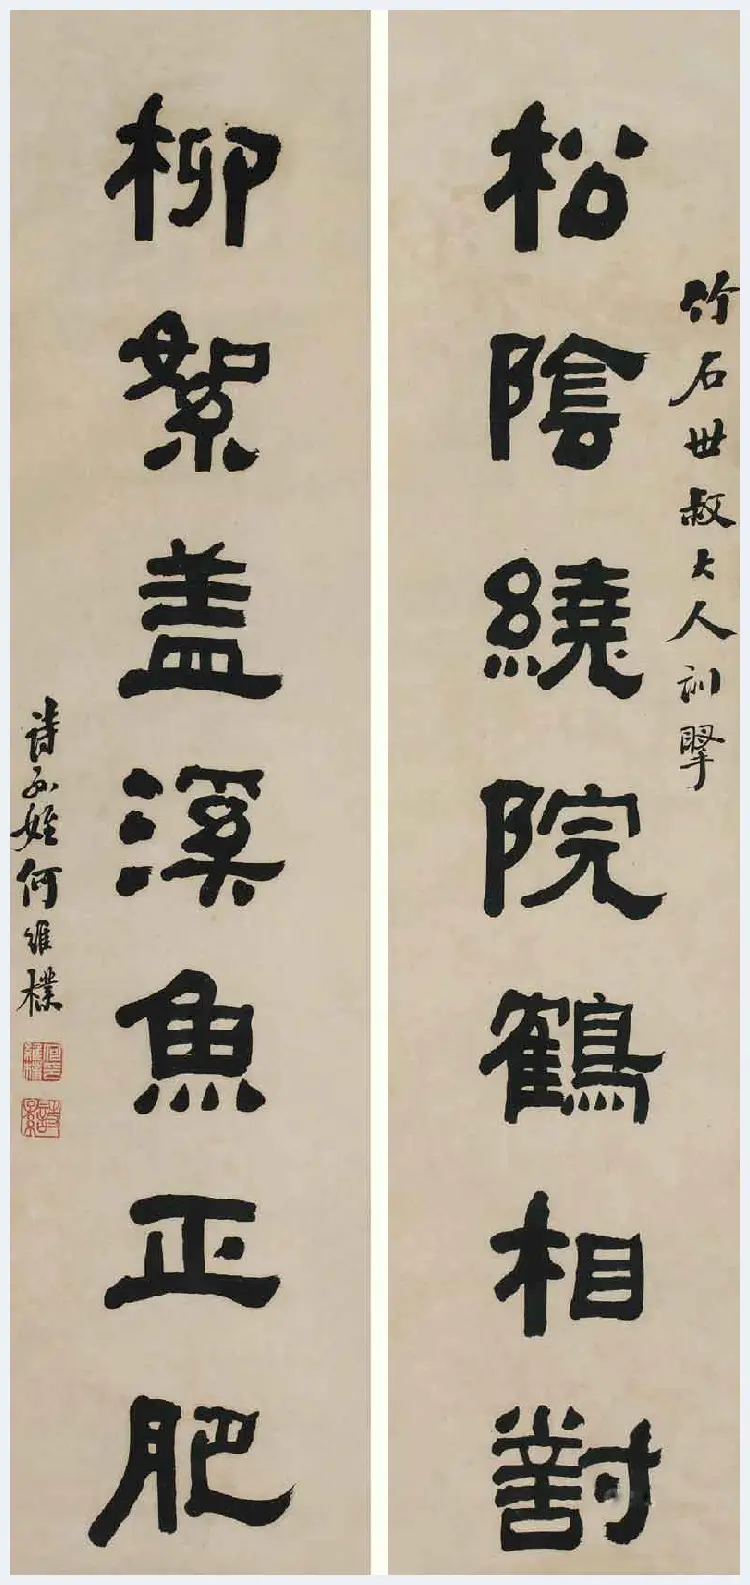 竹石世叔大人訓擊
松陰繞院鶴相對
柳絮盖溪魚正肥
詩孫姪何維樸